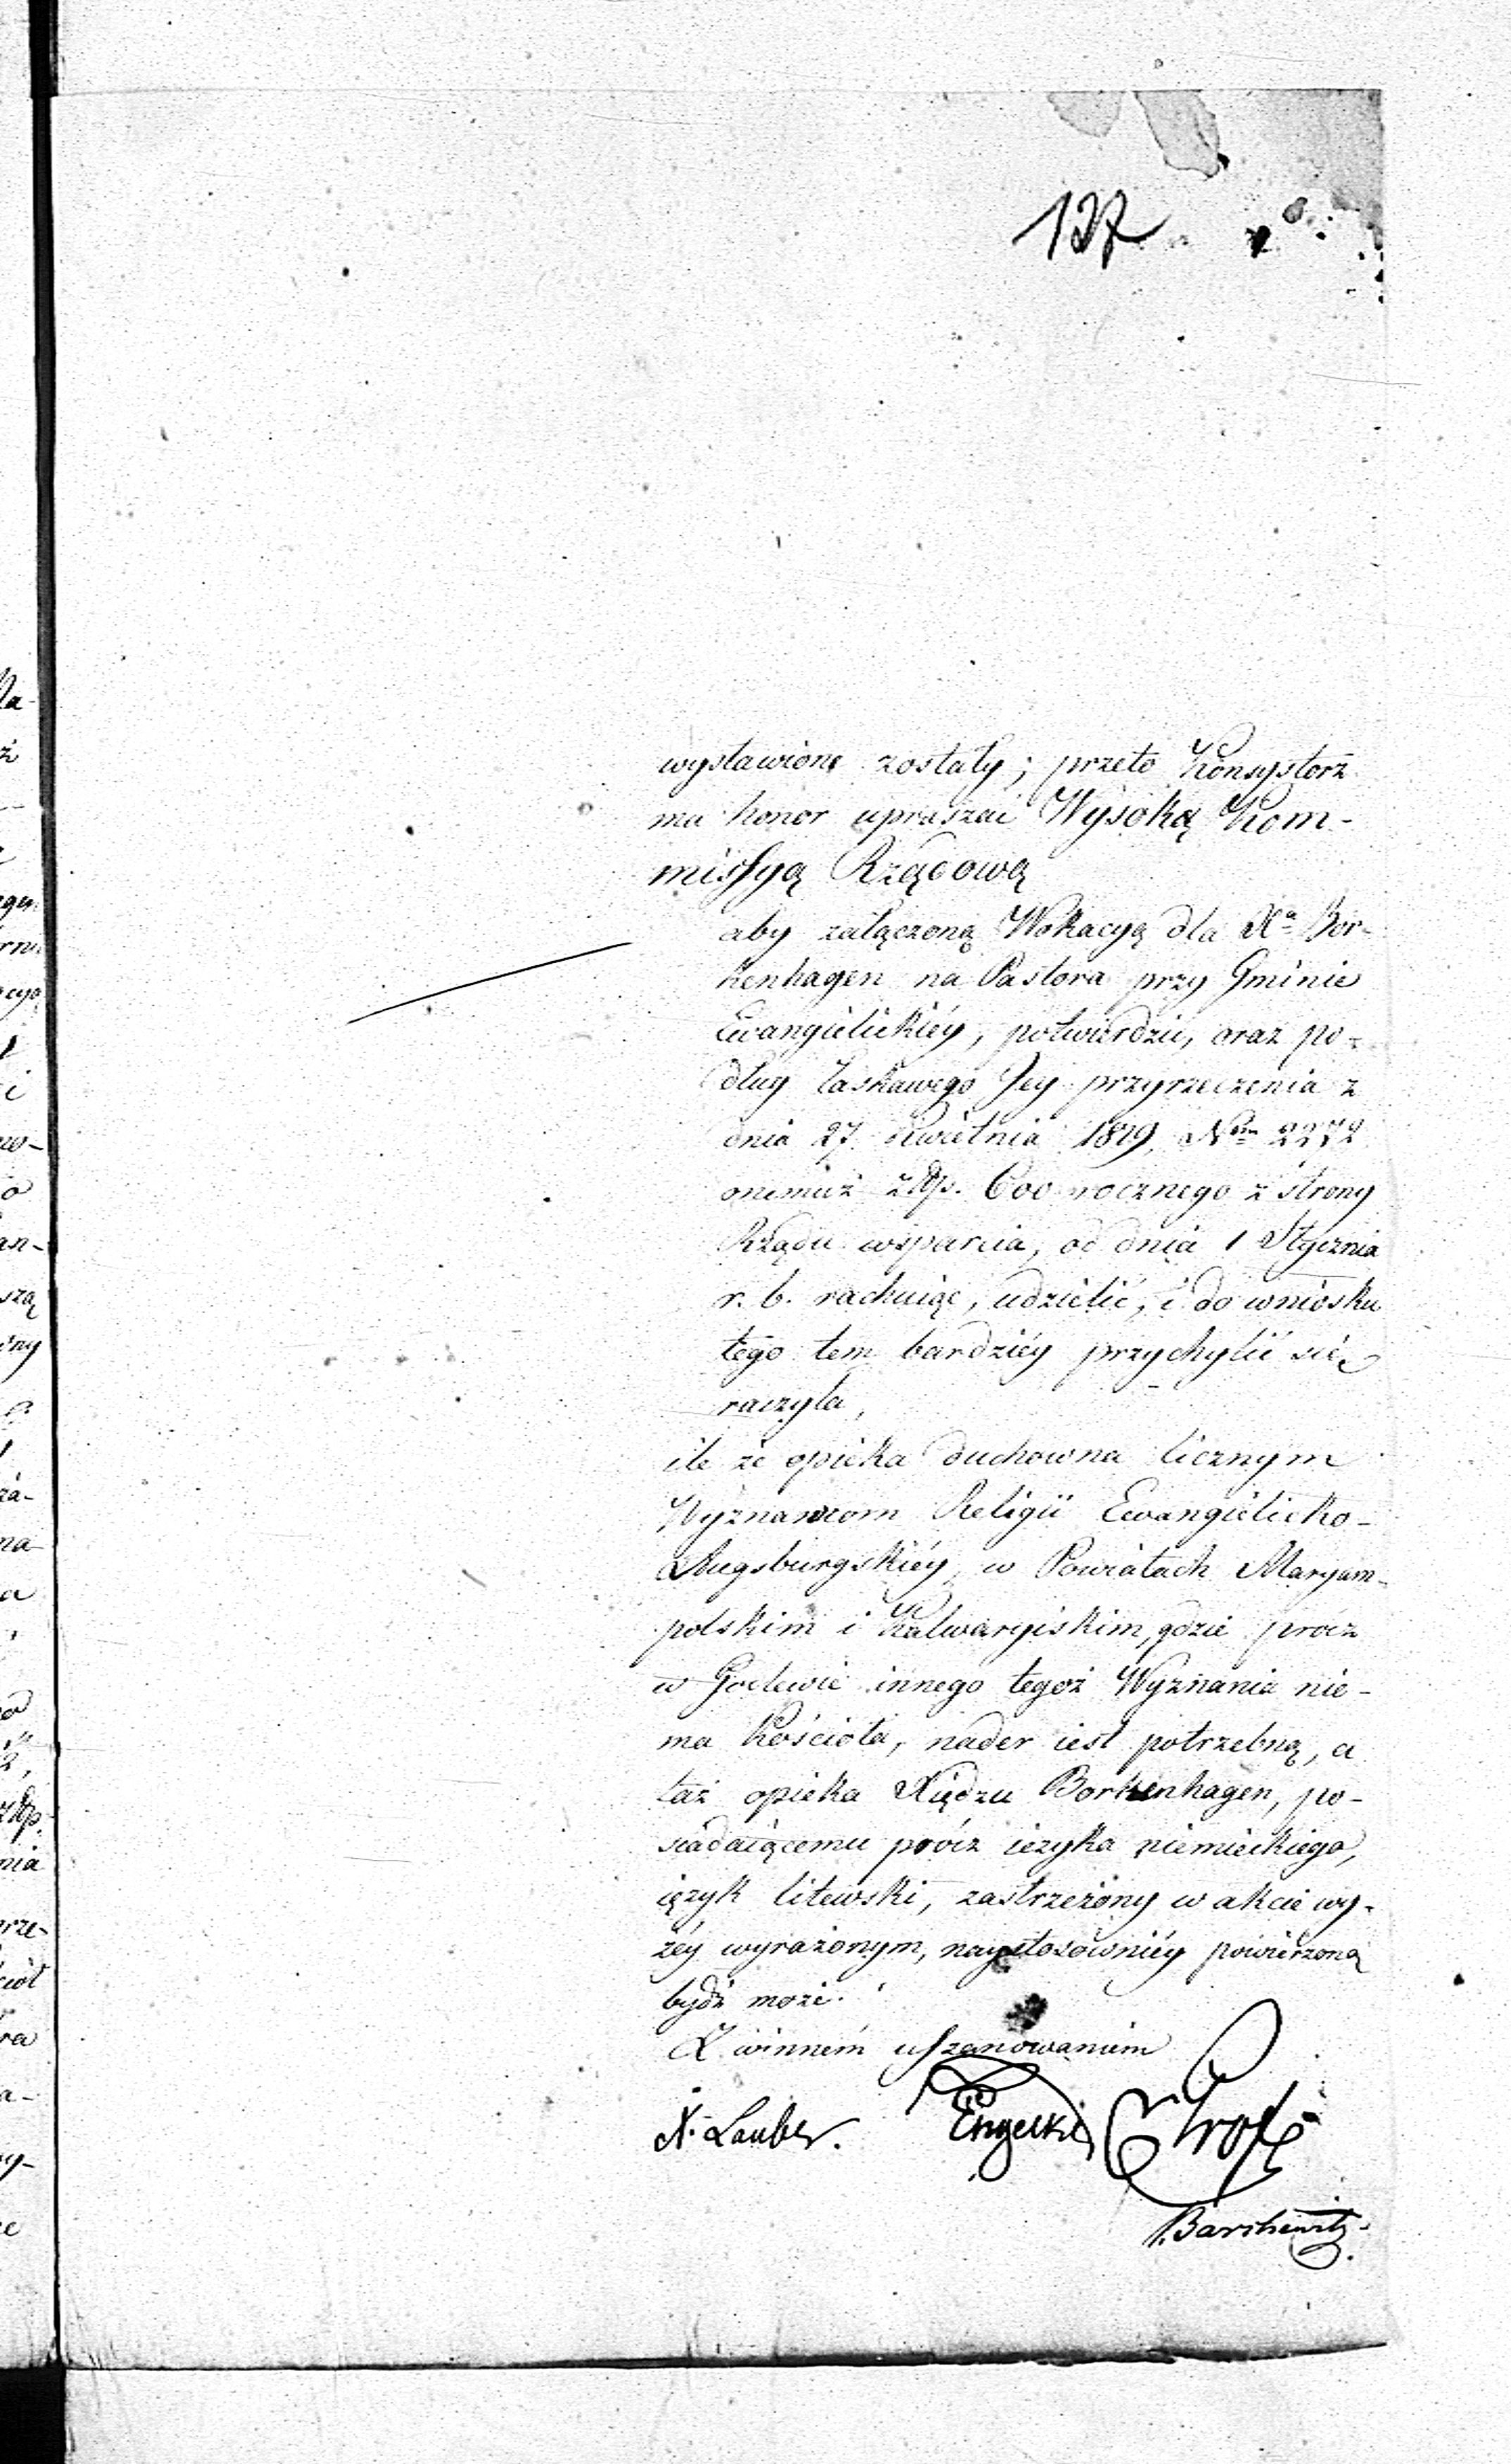 137
wystawione zostały; przeto Konsystorz
ma honor upraszać Wysoką Kom-
missyą Rządową
aby załączoną Wokacyą dla Xa Bor-
kenhagen na Pastora przy Gminie
Ewangielickiéy, potwierdzić, oraz po-
dług łaskawego Jey przyrzeczenia z
dnia 27 Kwietnia 1819, Nrm 2272
onemuż złp. 600 rocznego z strony
Rządu wsparcia, od dnia 1 Stycznia
r. b. rachuiąc, udzielić, i do wniosku
tego tem bardziéy przychylić się
raczyła,
ile że opieka duchowna licznym
Wyznawcom Religii Ewangielicko-
Augsburgskiéy, w Powiatach Maryam-
polskim i Kalwaryiskim, gdzie prócz
w Godlewie innego tegoż Wyznania nie-
ma Kościoła, nader iest potrzebną, a
taż opieka Xiędzu Borkenhagen, po-
siadaiącemu prócz ięzyka niemieckiego,
ięzyk litewski, zastrzeżony w akcie wy-
żéy wyrażonym, naystosowniéy powierzoną
bydź może.
Z winném uszanowaniem
X. Lauber. Engelke
Barchewitz.